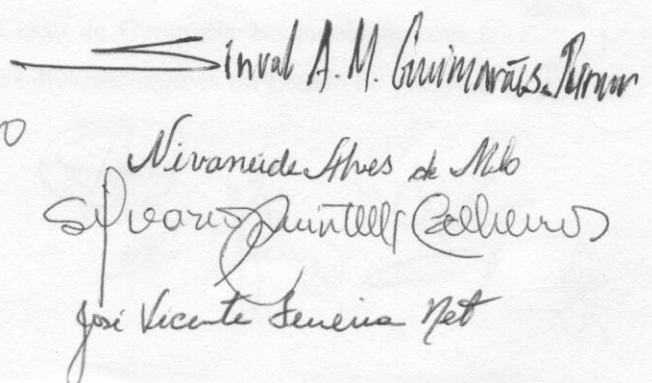 Sinval A. M. Guimarães Júnior
Nivaneide Alves de Melo
Silvana Quintella Calheiros
José Vicente Ferreira Neto